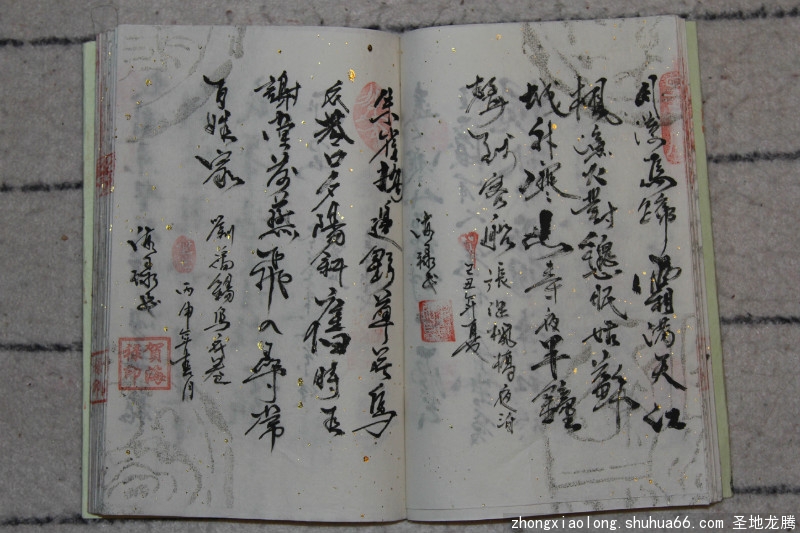 月落烏啼霜滿天江
楓漁火對愁眠姑蘇
城外寒山寺夜半鐘
聲到客船 張繼楓橋夜泊
己丑年夏
海祿書
朱雀橋邊野草花烏
衣巷口夕陽斜舊時王
謝堂前燕飛入尋常
百姓家 劉禹錫烏衣巷
丙申年 月
海祿書
賀海
祿印
zhongxiaolong.shuhua66.com 圣地龙腾